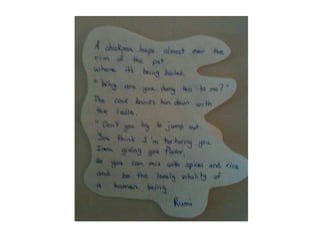 A chickpea leaps almost over the
rim of the pot
where it's being boiled.
"Why are you doing this to me?"
The cook knocks him down with
the ladle.
"Don't you try to jump out.
You think I'm torturing you
I'm giving you flavor,
so you can mix with spices and rice
and be the lovely vitality of
a human being
Rumi